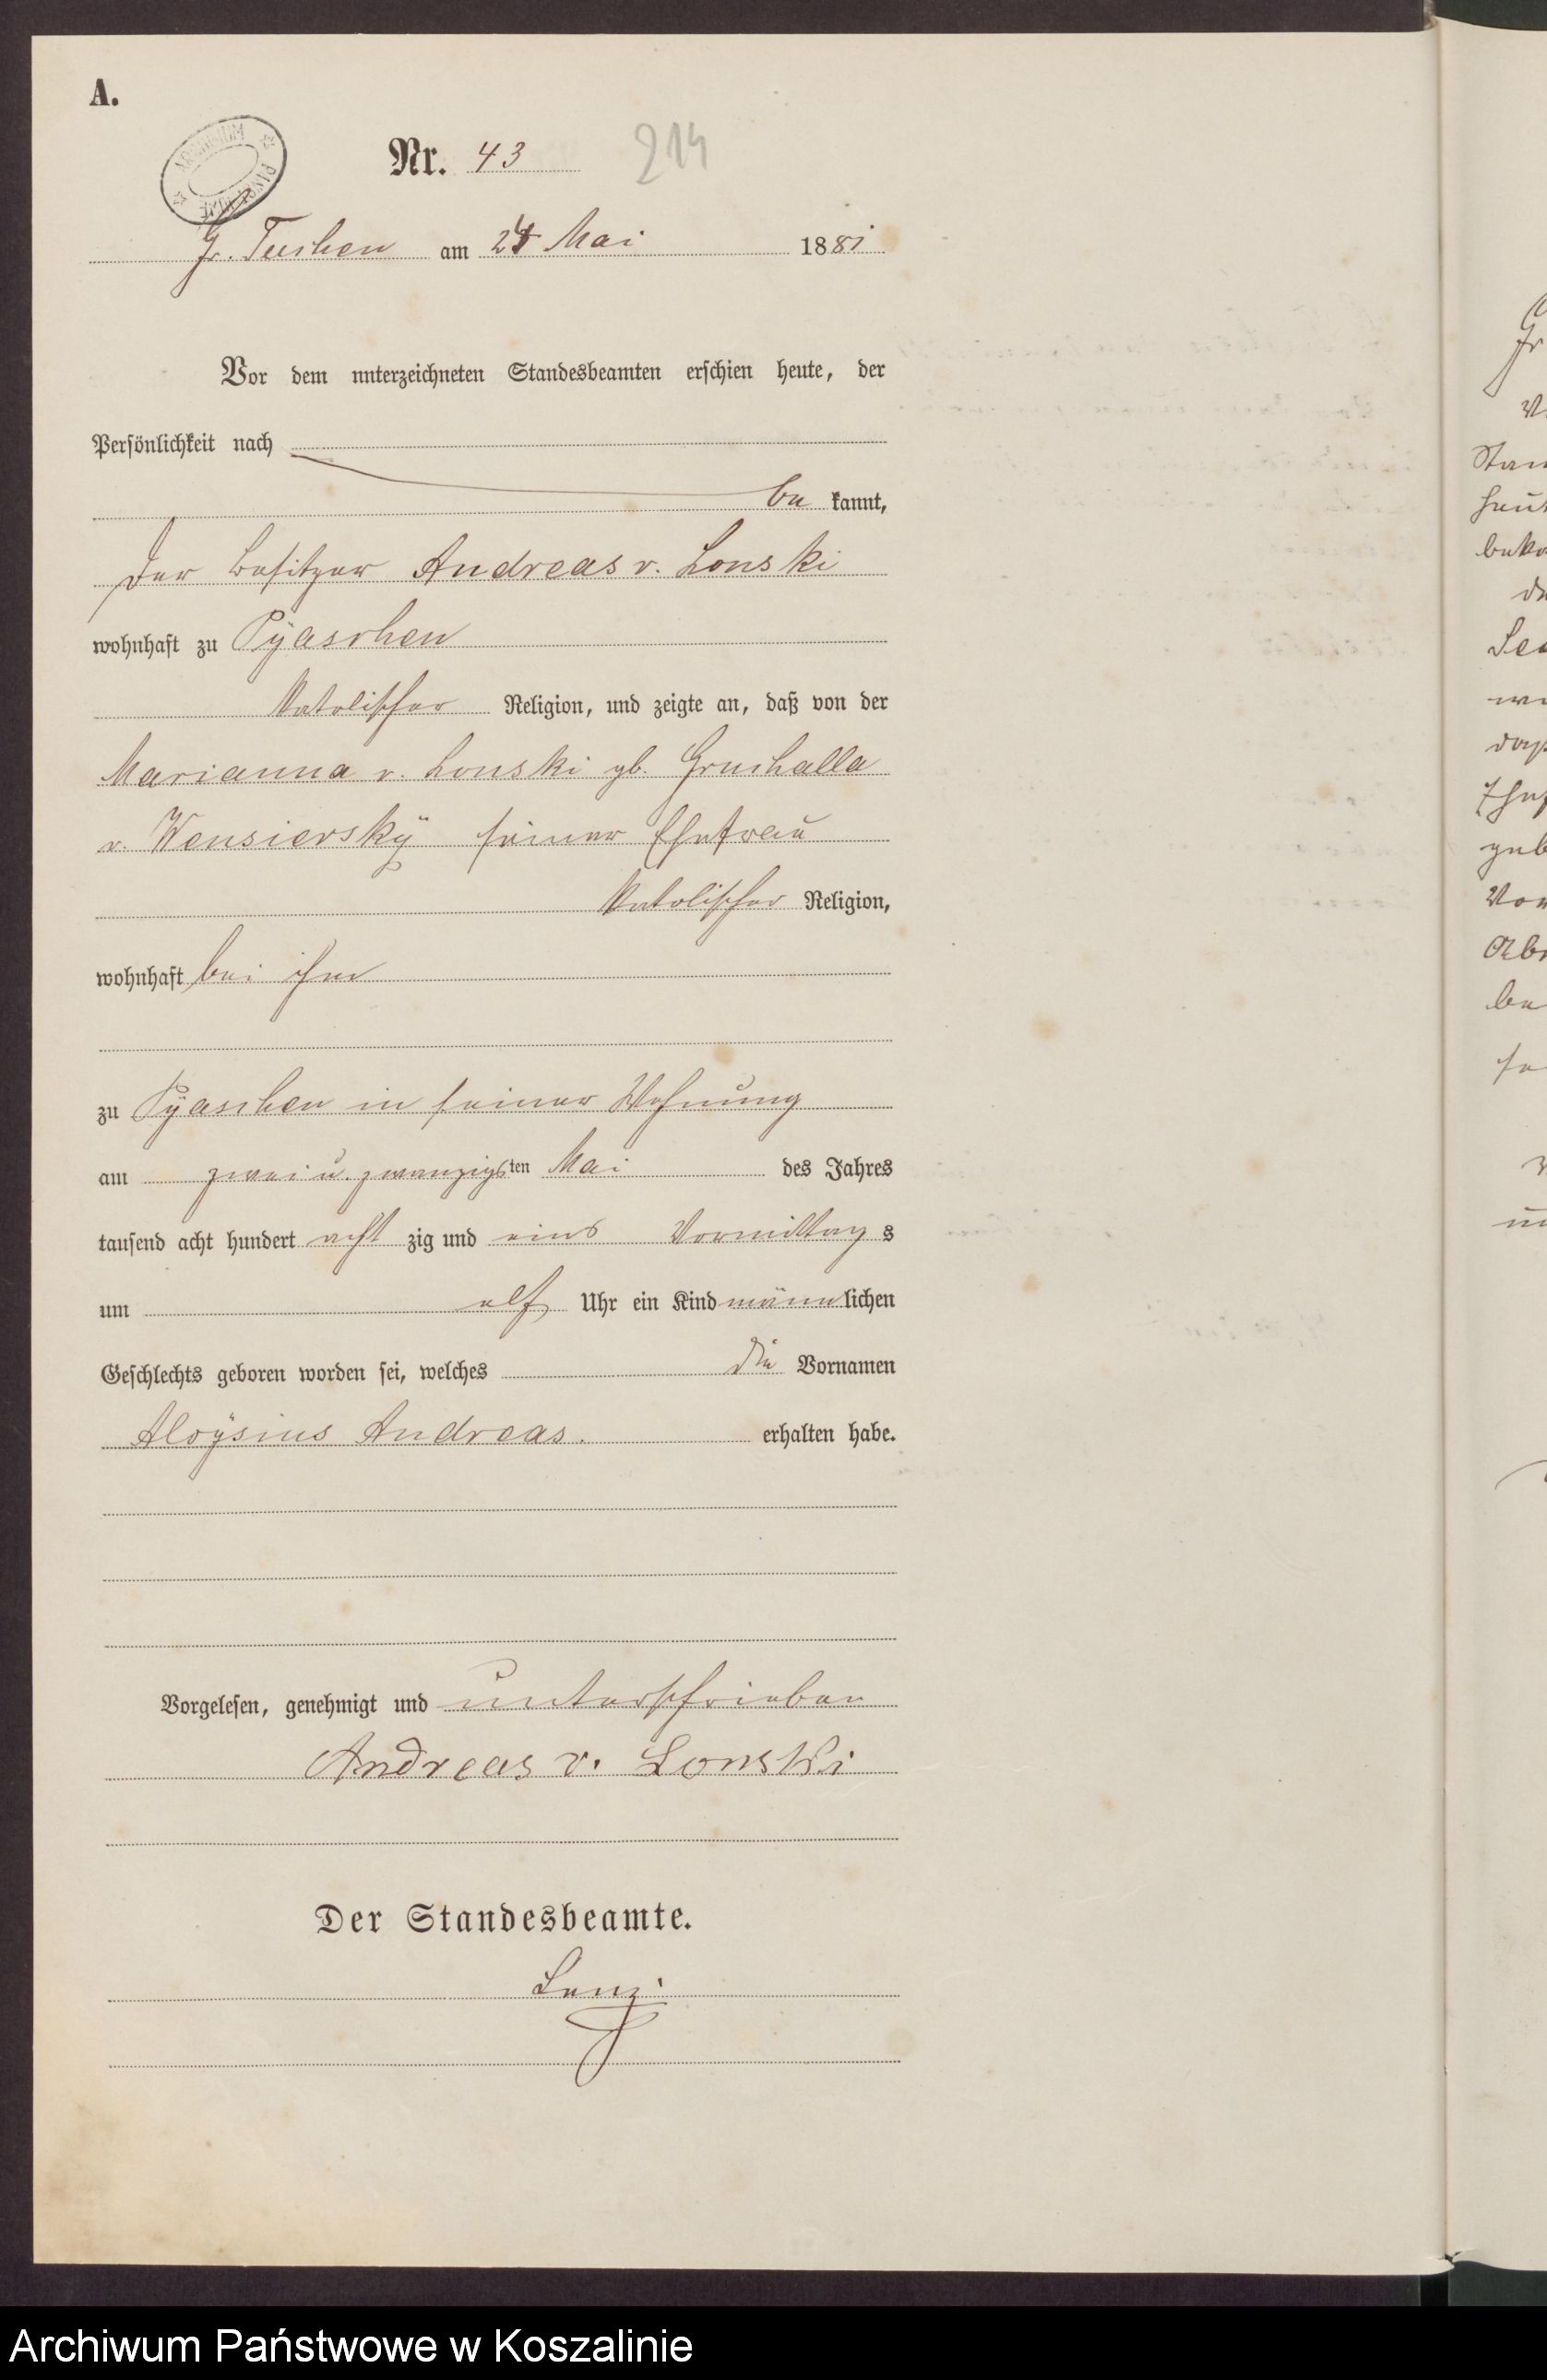 A.
ARCHIWUM
Nr. 43 214
Gr. Tuchen am 24 Mai 1881
Vor dem unterzeichneten Standesbeamten erschien heute, der
Persönlichkeit nach
be kannt,
der Besitzer Andreas v. Lonski
wohnhaft zu Pÿaschen
katolischer Religion, und zeigte an, daß von der
Marianna v. Lonski gb. Gruchalla
v. Wensierskÿ seiner Ehefrau
katolischer Religion,
wohnhaft bei ihm
zu Pÿaschen in seiner Wohnung
am zwei u. zwanzigsten Mai des Jahres
tausend acht hundert acht zig und eins Vormittag s
um elf Uhr ein Kind männlichen
Geschlechts geboren worden sei, welches die Vornamen
Aloÿsius Andreas. erhalten habe.
Vorgelesen, genehmigt und unterschrieben
Andreas v. Lonski
Der Standesbeamte.
Lenz
Archiwum Państwowe w Koszalinie